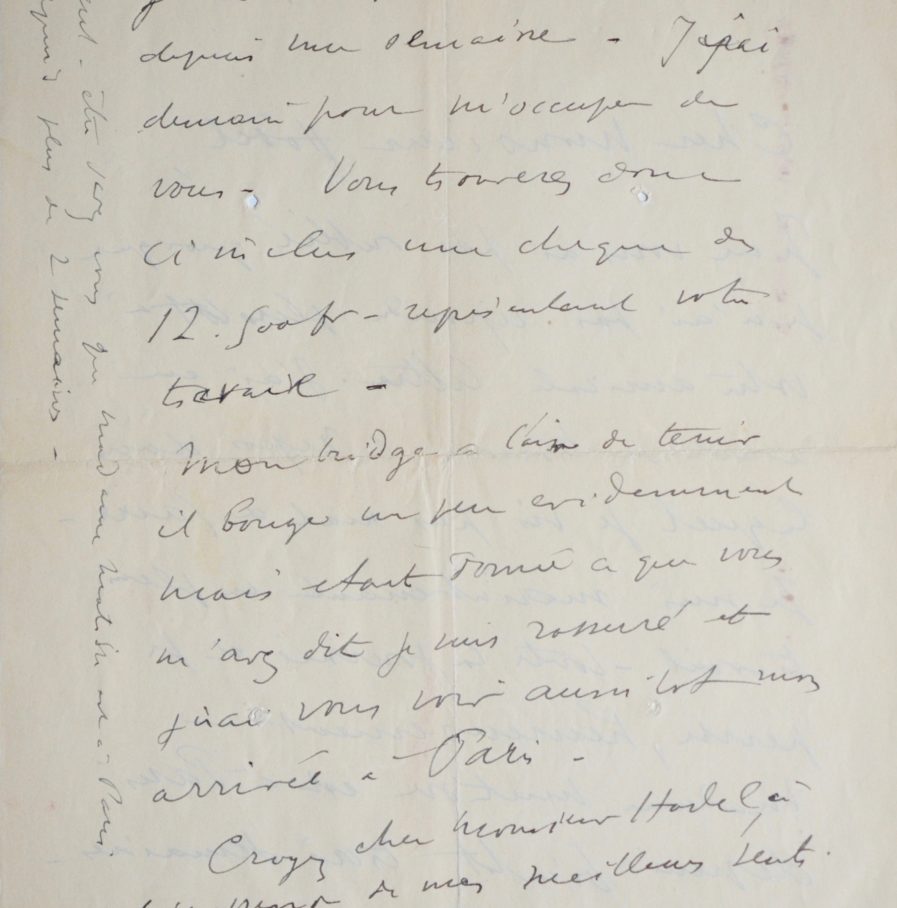 depuis une semaine -
demain pour m'occuper de
vous - Vous trouverez donc
ci inclus une cheque de
12.500fr - représentant votre
travail -
Mon bridge a l'air de tenir
il bouge un peu evidemment
mais etant donné ce que vous
m'avez dit je suis rassuré et
j'irai vous voir aussitot mon
arrivée à Paris -
Croyez cher Monsieur Hodel, à
de mes meilleurs sents.
être vous que madame Matisse est à Paris.
plus de 2 semaines -